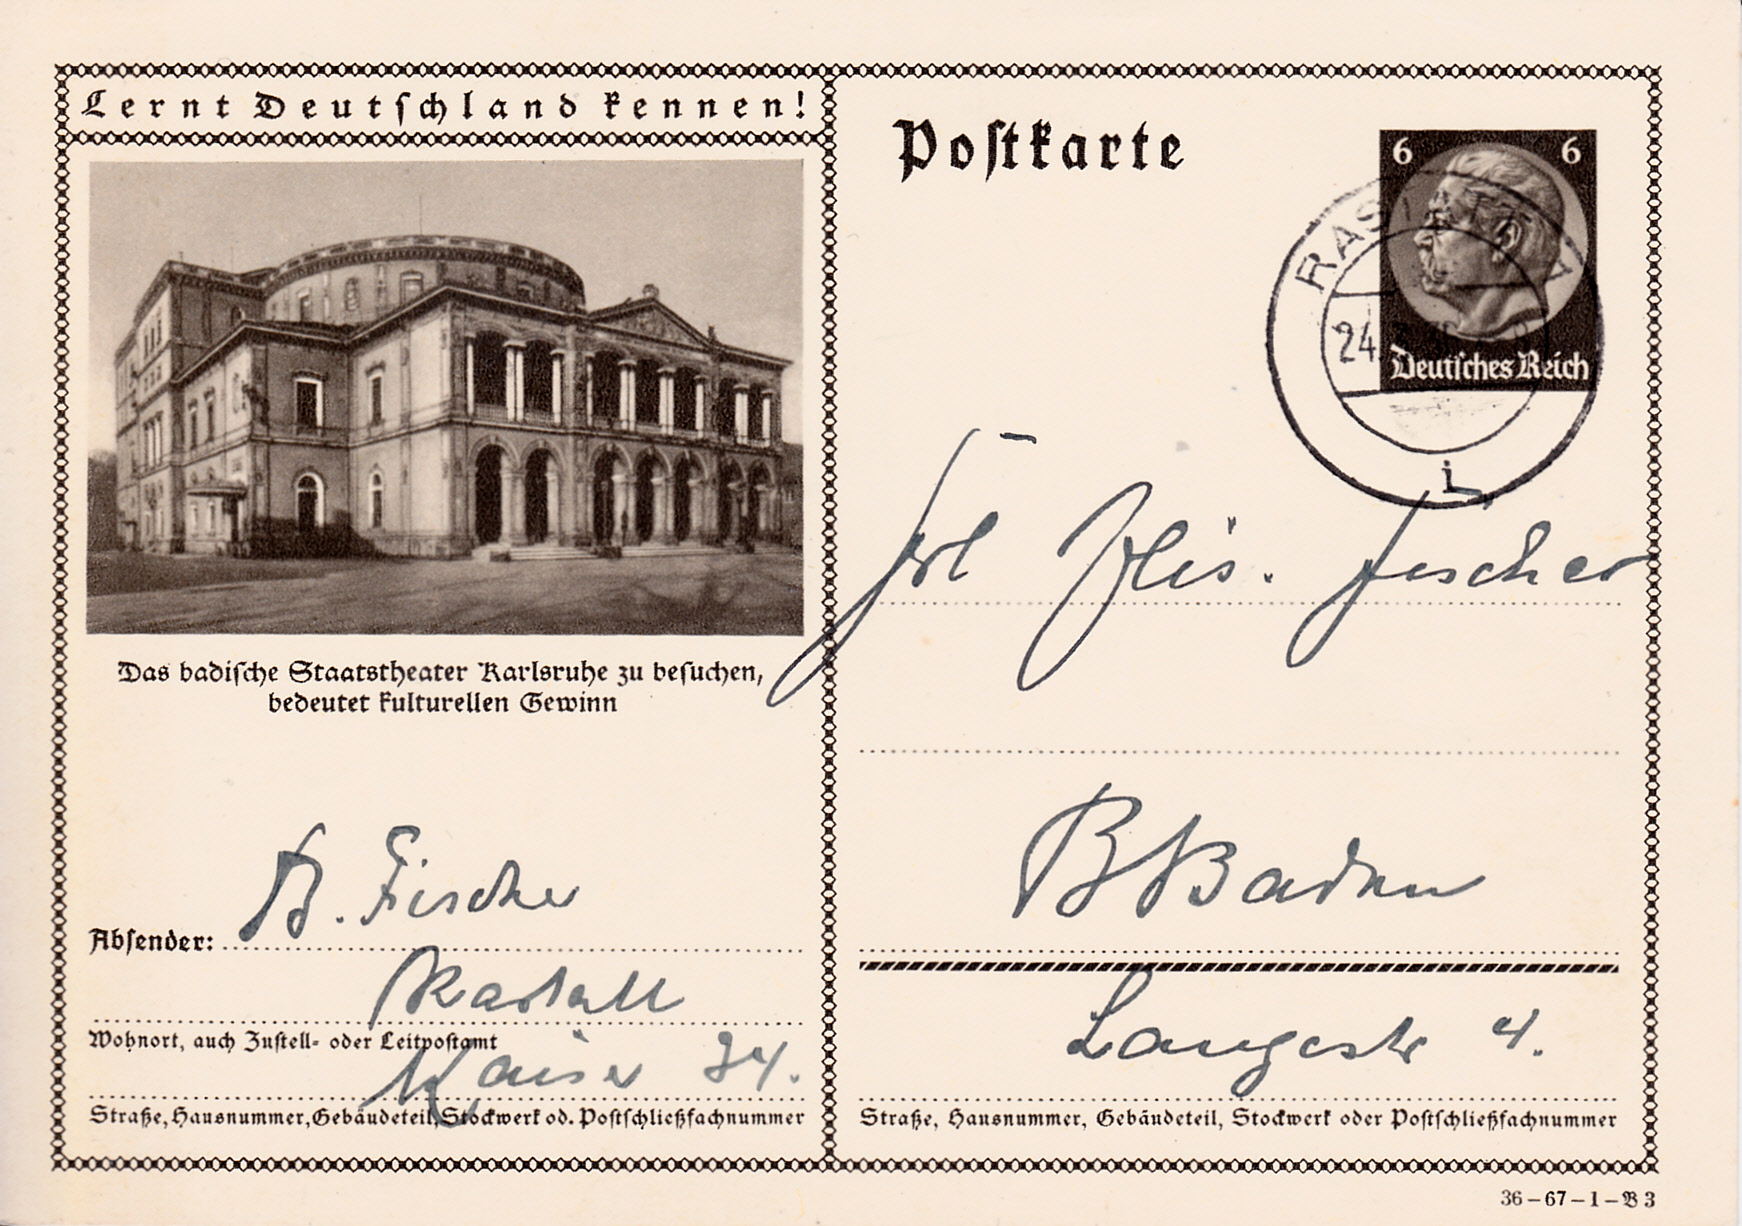 Lernt Deutschland kennen!
Das badische Staatstheater Karlsruhe zu besuchen,
bedeutet kulturellen Gewinn
B. Fischer
Absender:
Rastatt
Wohnort, auch Zustell- oder Leitpostamt
Kaiser 34.
Straße, Hausnummer, Gebäudeteil, Stockwerk od. Postschließfachnummer
Postkarte
6 6
Deutsches Reich
24
Frl Elis. Fischer
BBaden
Langestr 4.
Straße, Hausnummer, Gebäudeteil, Stockwerk oder Postschließfachnummer
36–67–1–B3